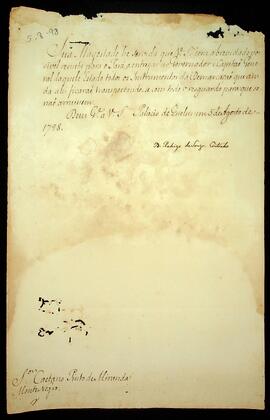 5.8.98
Sua Magestade he servida que V. S.ª com a brevidade pos-
sivel remeta para o Pará, a entregar ao Governador e Capitão Gene-
ral daquelle Estado todos os Instrumentos da Demarcação que ain-
da ahi ficarão transportando-a com todo o resguardo para que se
não arruinem.
Deus G.e a V. S.ª Palacio de Queluz em 5 de Agosto de
1798.
D. Rodrigo de Souza Coutinho
S.or Caetano Pinto de Miranda
Monte Negro.